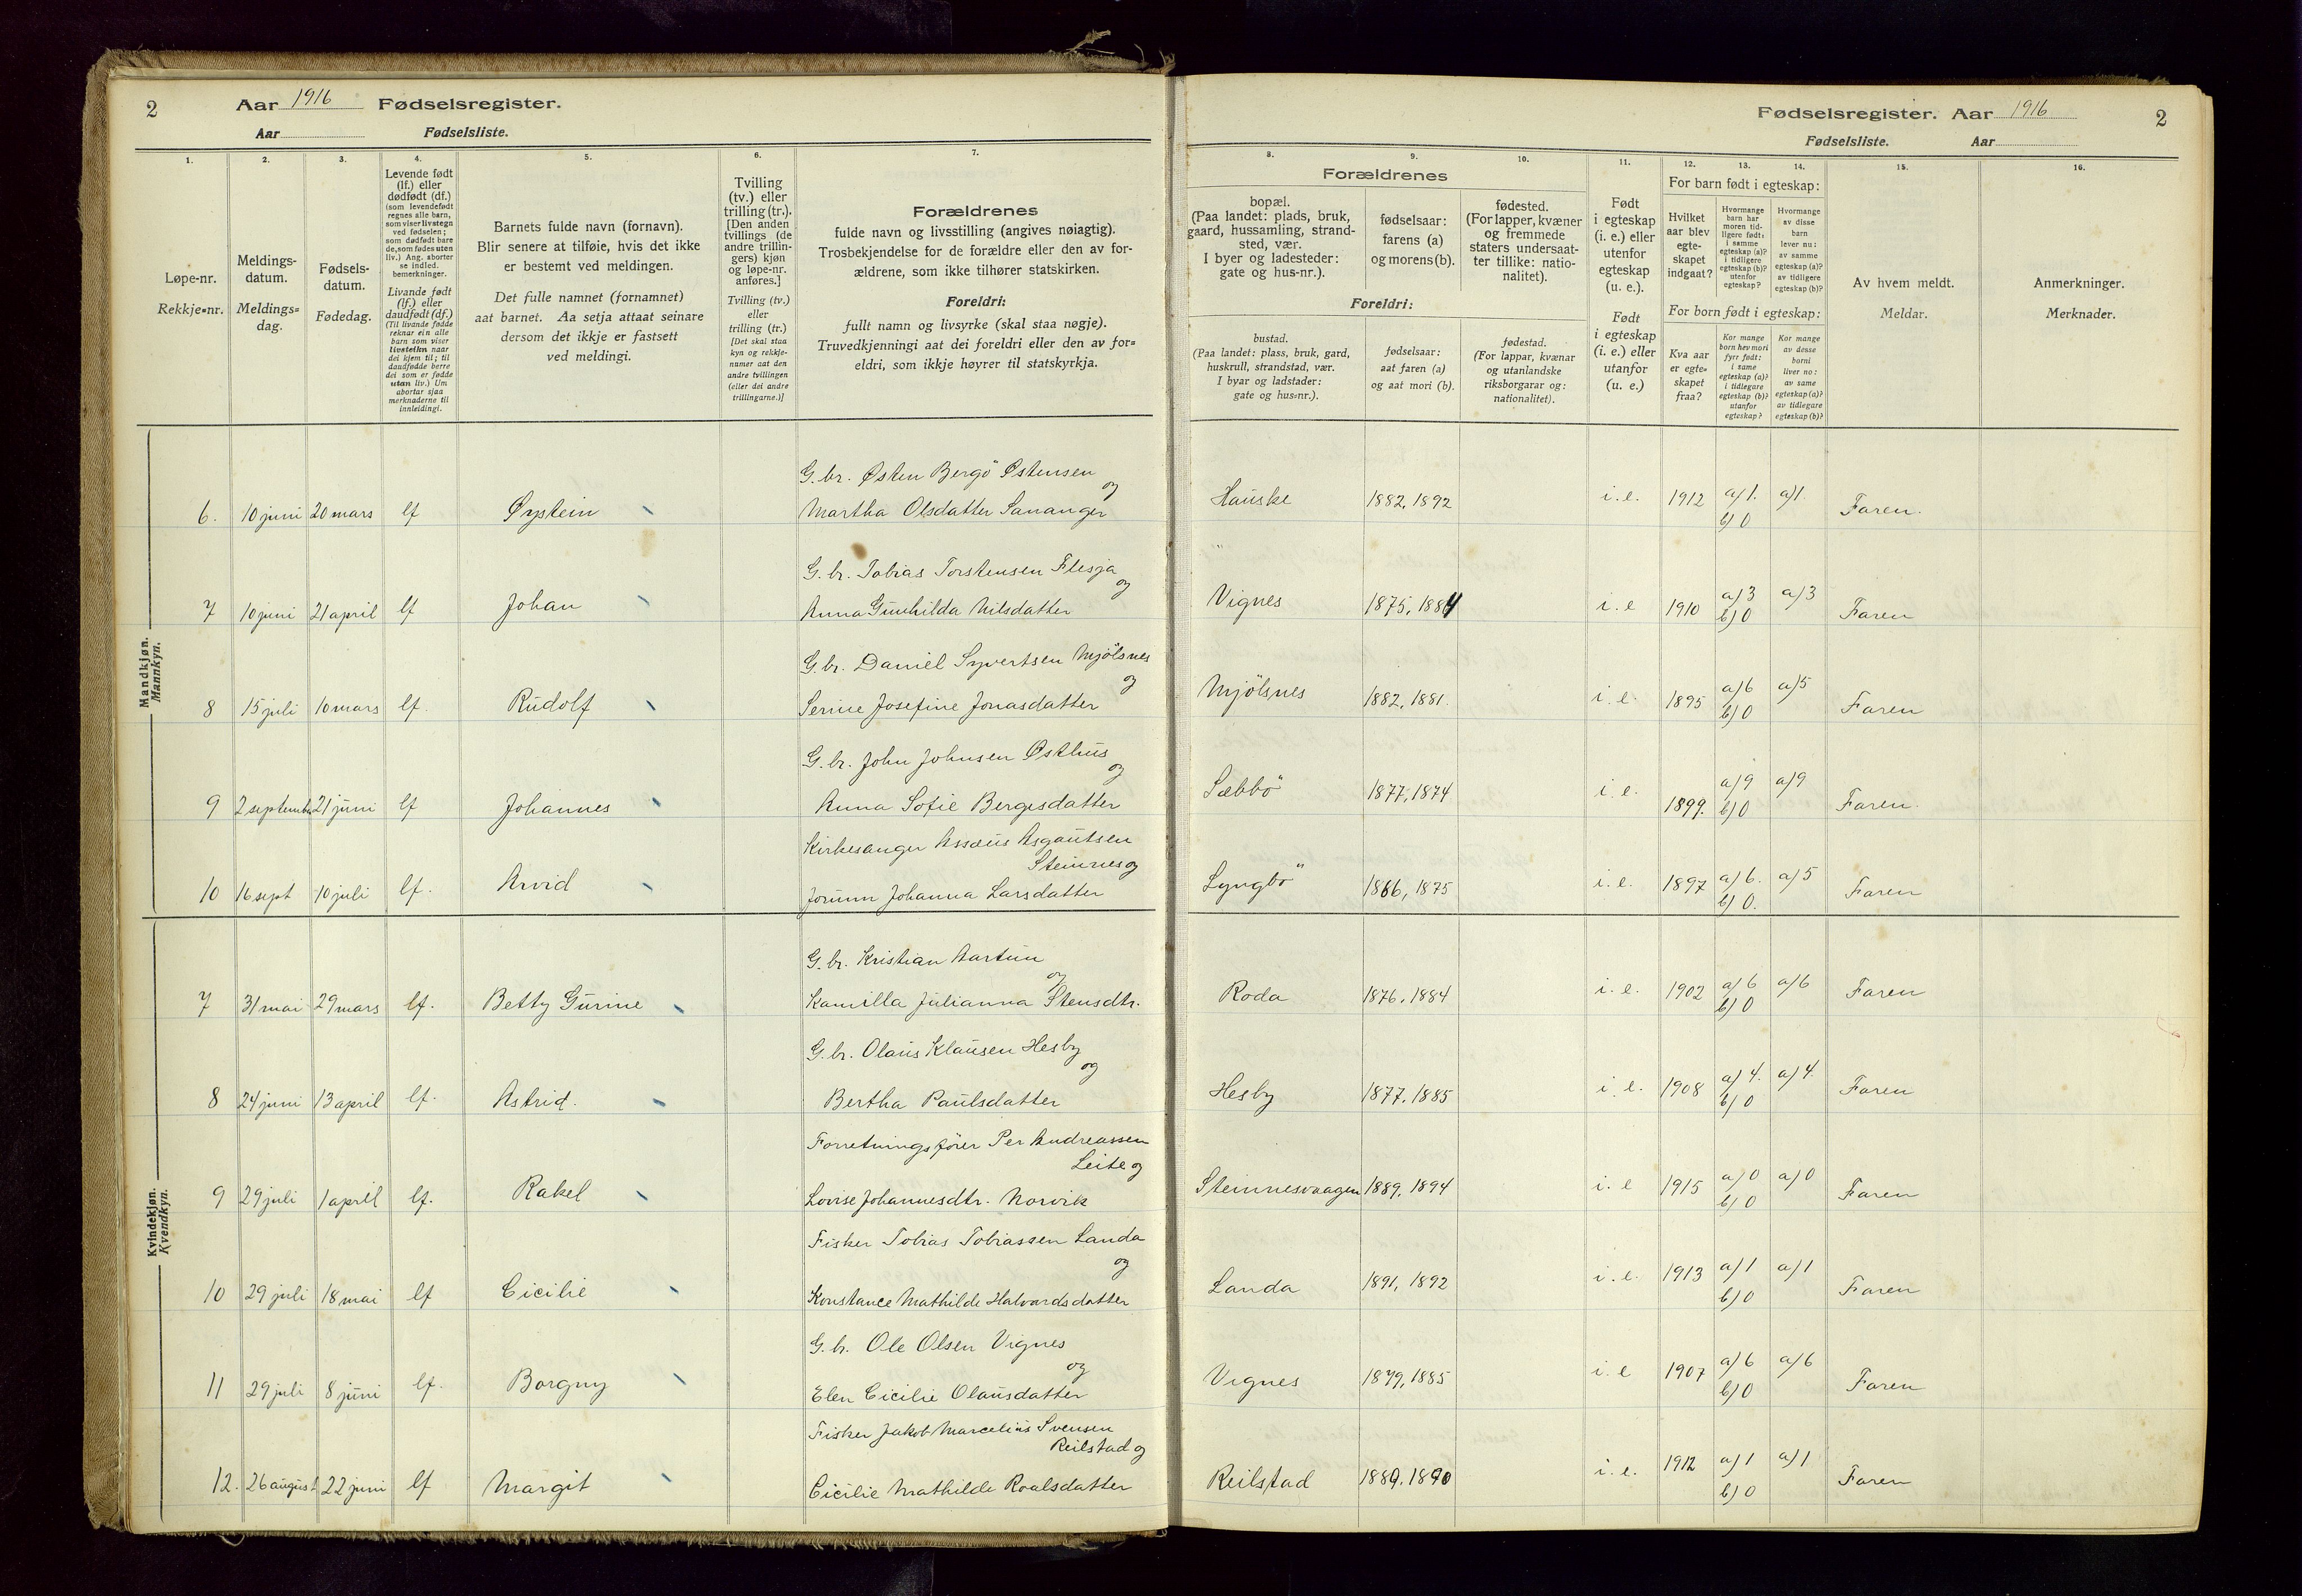 2 Aar 1916 Fødselsregister.
Aar Fødselsliste.
1. 2. 3. 4. 5. 6. 7.
Løpe-nr.
Rekkje=nr.
Meldings-
datum.
Meldings=
dag.
Fødsels-
datum.
Fødedag.
Levende født
(lf.) eller
dødfødt (df.)
(som levendefødt
regnes alle barn,
som viser livstegn
ved fødselen;
som dødfødt bare
de, som fødes uten
liv.) Ang. aborter
se indled.
bemerkninger.
Livande født
(lf.) eller
daudfødt (df.)
(Til livande fødde
reknar ein alle
barn som viser
livsteikn naar
dei kjem til; til
daudfødde berre
dei som er fødde
utan liv.) Um
abortar sjaa
merknaderne til
innleidingi.
Barnets fulde navn (fornavn).
Blir senere at tilføie, hvis det ikke
er bestemt ved meldingen.
Det fulle namnet (fornamnet)
aat barnet. Aa setja attaat seinare
dersom det ikkje er fastsett
ved meldingi.
Tvilling
(tv.) eller
trilling (tr.).
[Den anden
tvillings (de
andre trillin-
gers) kjøn
og løpe-nr.
anføres.]
Tvilling (tv.)
eller
trilling (tr.)
[Det skal staa
kyn og rekkje-
numer aat den
andre tvillingen
(eller dei andre
trillingarne.)]
Forældrenes
fulde navn og livsstilling (angives nøiagtig).
Trosbekjendelse for de forældre eller den av for-
ældrene, som ikke tilhører statskirken.
Foreldri:
fullt namn og livsyrke (skal staa nøgje).
Truvedkjenningi aat dei foreldri eller den av for=
eldri, som ikkje høyrer til statskyrkja.
Mandkjøn.
Mannkyn.
G. br. Østen Bergö Østensen
og
6. 10 juni 20 mars lf Øystein Martha Olsdatter Sananger
G. br. Tobias Torstensen Flesja
og
7 10 juni 21 april lf Johan Anna Gunhilda Nilsdatter
G. br. Daniel Syvertsen Mjölsnes
og
8 15 juli 10 mars lf. Rudolf Serine Josefine Jonasdatter
G. br. John Johnsen Østhus
og
9 2 september 21 juni lf Johannes Anna Sofie Bergesdatter
Kirkesanger Assæus Asgautsen
Steinnes og
10 16 sept 10 juli lf. Arvid Jorunn Johanna Larsdatter
Kvindekjøn.
Kvendkyn.
G. br. Kristian Aartun
og
7 31 mai 29 mars lf. Betty Gurine Kamilla Julianna Stensdtr.
G. br. Olaus Klausen Hesby
og
8 24 juni 13 april lf. Astrid. Bertha Paulsdatter
Forretningsfører Per Andreassen
Leite og
9 29 juli 1 april lf. Rakel Lovise Johannesdtr. Norvik
Fisker Tobias Tobiassen Landa
og
10 29 juli 18 mai lf Cicilie Konstance Mathilde Halvardsdatter
G. br. Ole Olsen Vignes
og
11 29 juli 8 juni lf. Borgny Elen Cicilie Olausdatter
Fisker Jakob Marcelius Svensen
Reilstad og
12. 26 august 22 juni lf Margit Cicilie Mathilde Roalsdatter
Fødselsregister. Aar 1916 2
Fødselsliste. Aar
8. 9. 10. 11. 12. 13. 14. 15. 16.
Forældrenes
bopæl.
(Paa landet: plads, bruk,
gaard, hussamling, strand-
sted, vær.
I byer og ladesteder:
gate og hus-nr.).
fødselsaar:
farens (a)
og morens (b).
fødested.
(For lapper, kvæner
og fremmede
staters undersaat-
ter tillike: natio-
nalitet).
Foreldri:
bustad.
(Paa landet: plass, bruk, gard,
huskrull, strandstad, vær.
I byar og ladstader:
gate og hus=nr.).
fødselsaar:
aat faren (a)
og aat mori (b).
fødestad.
(For lappar, kvænar
og utanlandske
riksborgarar og:
nationalitet).
Født
i egteskap
(i. e.) eller
utenfor
egteskap
(u. e.).
Født
i egteskap
(i. e.) eller
utanfor
(u. e.)
For barn født i egteskap:
Hvilket
aar blev
egte-
skapet
indgaat?
Hvormange
barn har
moren tid-
ligere født:
i samme
egteskap (a)?
i tidligere
egteskap (b)?
utenfor
egteskap?
Hvormange
av disse
barn
lever nu:
av samme
egteskap (a)?
av tidligere
egteskap (b)?
For born født i egteskap:
Kva aar
er egte=
skapet
fraa?
Kor mange
born hev mori
fyrr født:
i same
egteskap (a)?
i tidlegare
egteskap (b)?
utanfor
egteskap?
Kor mange
av desse
borni
liver no:
av same
egteskap (a)?
av tidlegare
egteskap (b)?
Av hvem meldt.
Meldar.
Anmerkninger.
Merknader.
Hauske 1882, 1892 i. e. 1912 a/1. a/1. Faren.
b/0
Vignes 1875, 1884 i. e 1910 a/3 a/3 Faren
b/0
Mjölsnes 1882, 1881. i. e. 1895 a/6 a/5 Faren
b/0
Sæbbö 1877, 1874 i. e. 1899. a/9 a/9 Faren.
b/0
Lyngbö 1866, 1875 i. e. 1897 a/6. a/5 Faren
b/0.
Roda 1876, 1884 i. e. 1902 a/6 a/6 Faren
b/0
Hesby 1877, 1885 i. e. 1908 a/4. a/4. Faren
b/0
Steinnesvaagen 1889, 1894 i. e 1915 a/0 a/0 Faren
b/0
Landa 1891, 1892 i. e. 1913 a/1 a/1 Faren
b/0
Vignes 1879, 1885 i. e 1907 a/6 a/6 Faren
b/0
Reilstad 1889, 1890 i. e. 1912 a/1 a/1 Faren
b/0